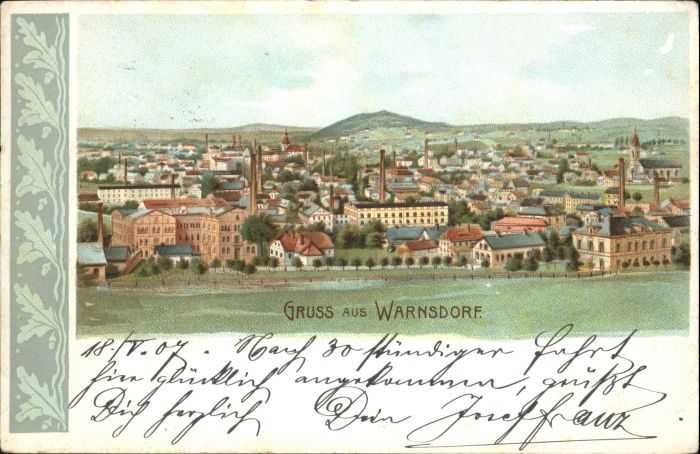 GRUSS AUS WARNSDORF.
18./V. 07. Nach 30 stündiger Fahrt
hier glücklich angekommen, grüßt
Dich herzlich Dein Josef Franz